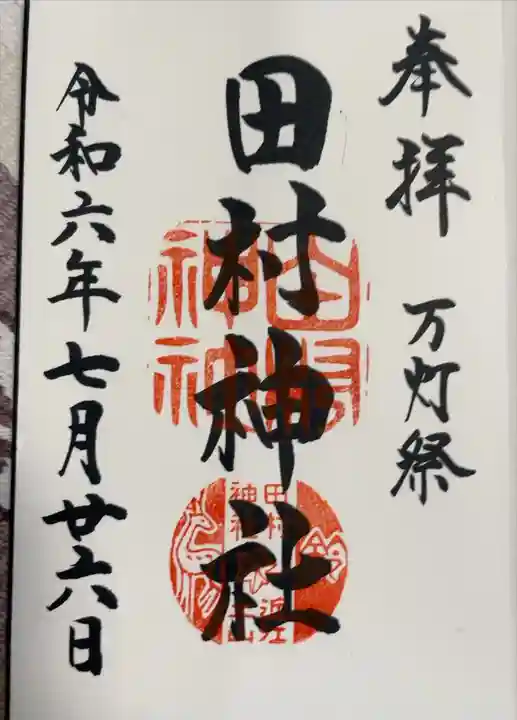 奉拝 万灯祭
田村神社
令和六年七月廿六日